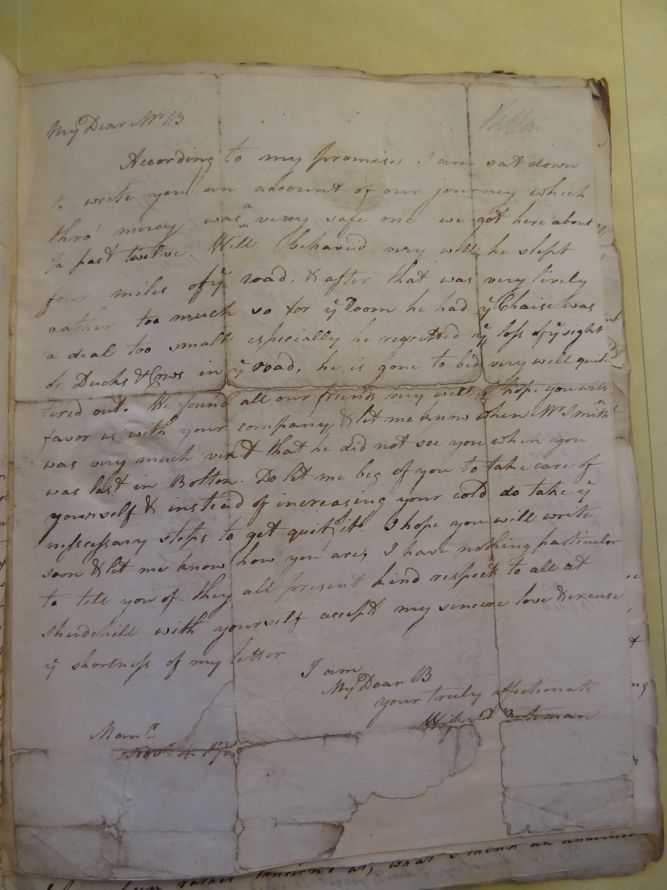 My Dear Mr B
According to my promises I am sat down
to write you an account of our journey which
thro' mercy was a verry safe one we got here about
½ past twelve. Will behav'd very well, he slept
four miles of ye road, & after that was very lively
rather too much so for ye Room he had ye Chaise was
a deal too small especially he regretted ye loss of ye sight
of Ducks & Cows in ye road, he is gone to bed very well quite
tired out. We found all our friends very well, I hope you will
favor us with your company, & let me know when Mr Smith
was very much vex'd that he did not see you when you
was last in Bolton. Do let me beg of you to take care of
yourself & instead of increasing your cold do take ye
nessessary steps to get quit of it. I hope you will write
soon & let me know how you are, I have nothing particular
to tell you of they all present kind respect to all at
with yourself accept my sincere love & excuse
ye shortness of my letter
I am
My Dear B
your truly affectionate
Bateman
Manr
Novr 4. 17